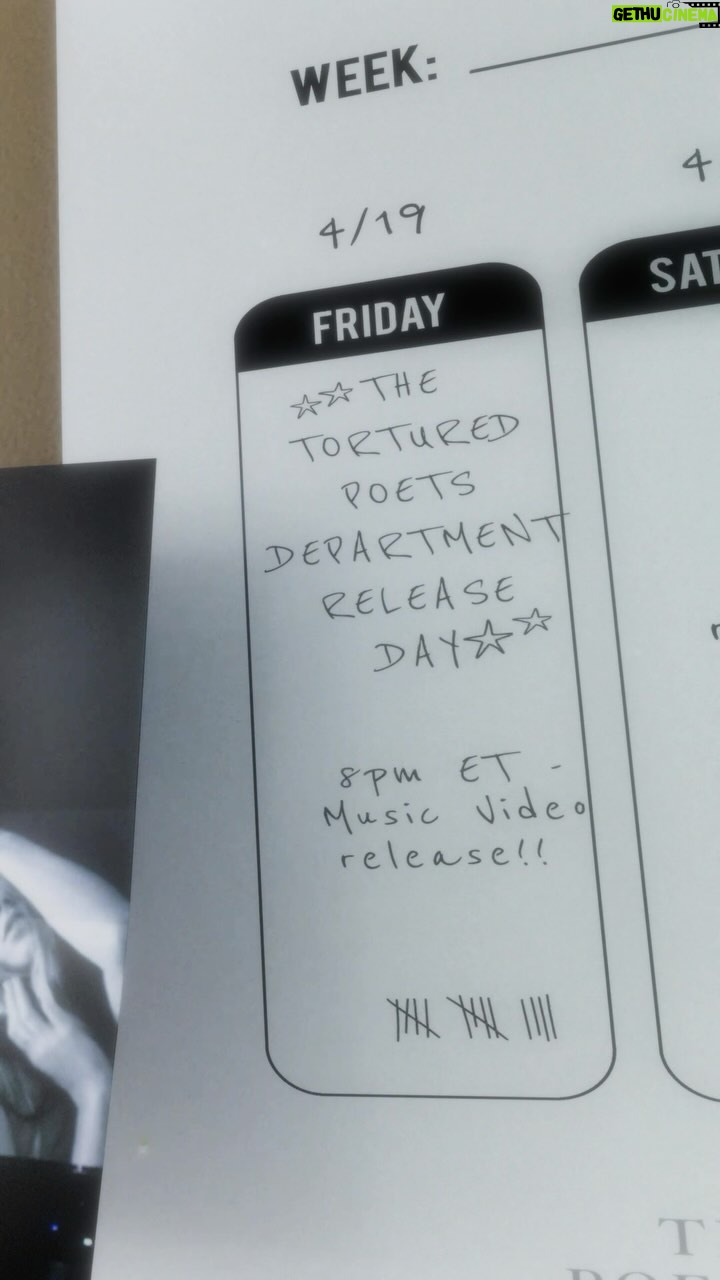 GETHU CINEMA
WEEK:
4/19
4
FRIDAY
SAT
☆☆ THE
TORTURED
POETS
DEPARTMENT
RELEASE
DAY☆☆
8pm ET -
Music Video
release!!